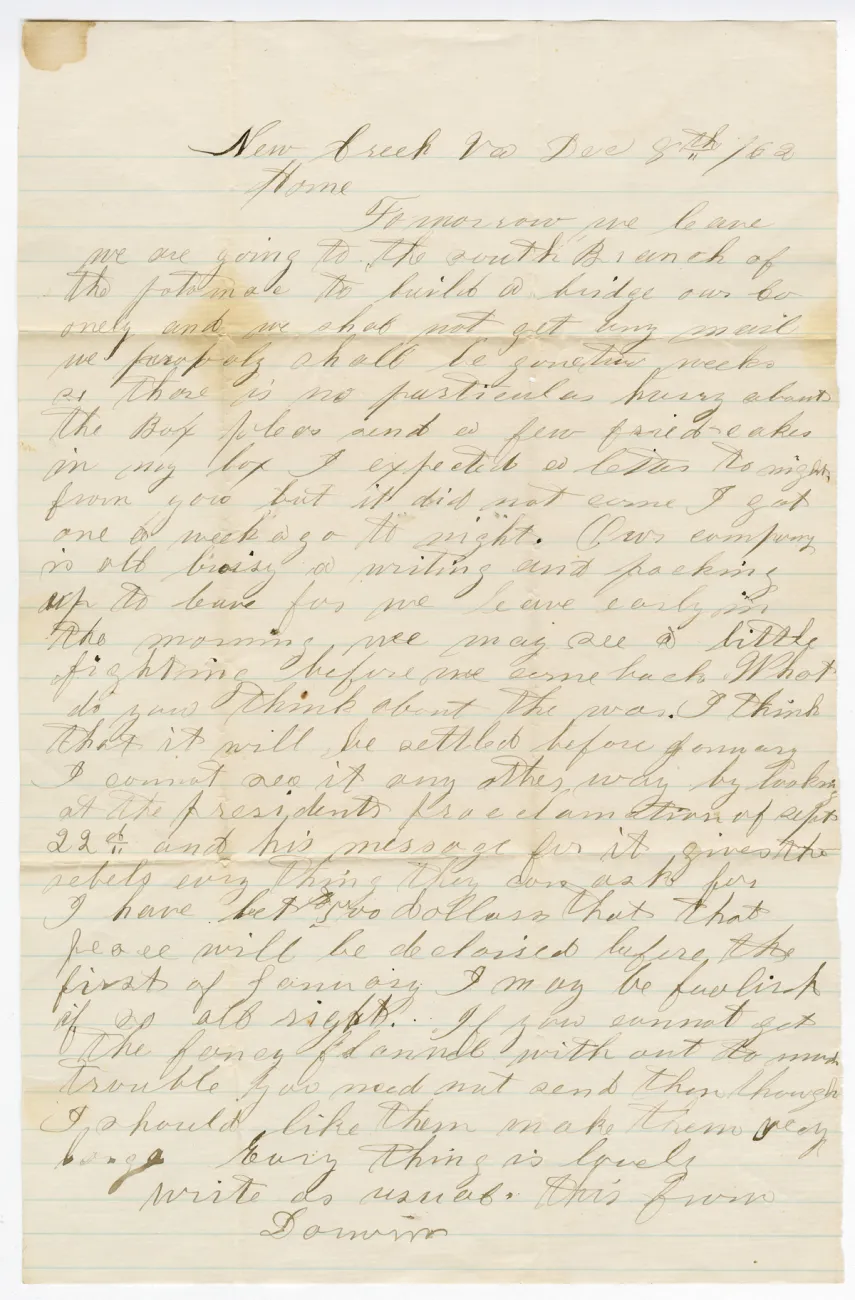 New Creek Va Dec 8th /62
Home
Tomorrow we leave
we are going to the south Branch of
the potomac to build a bridge our Co
onely and we shal not get any mail
we shall be gone two weeks
so thore is no particular hurry about
the Box pleas send a few fried-cakes
in my box I expected a letter to night
from you but it did not come I got
one a week ago to night. Our company
is all buisy a writing and packing
up to leave for we leave early in
the morning we may see a little
fighting before we come back What
do you think about the war. I think
that it will be settled before January
I cannot see it any other way by looking
at the presidents proclamation of sept
22nd and his message for it gives the
rebels evry thing they can ask for
I have bet two dollars that that
peace will be declaired before the
first of January I may be foolish
if so all right. If you cannot get
the fancy flannel with out to much
trouble you need not send them though
I should like them make them very
large Evry thing is lovely
write as usual. this from
Darwin